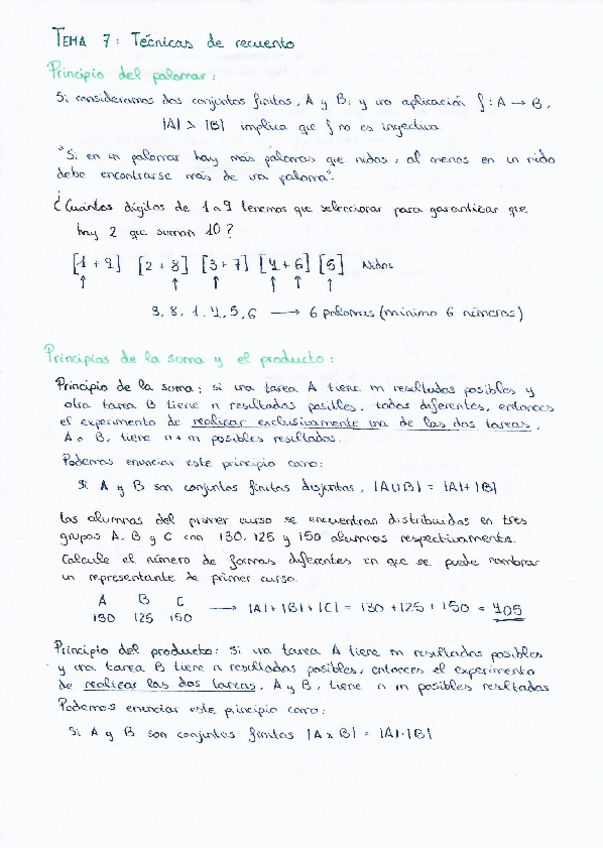 TEMA 7: Técnicas de recuento
Principio del palomar:
Si consideramos dos conjuntos finitos, A y B, y una aplicación f: A → B,
|A| > |B| implica que f no es inyectiva.
"Si en un palomar hay más palomas que nidos, al menos en un nido
debe encontrarse más de una paloma".
¿Cuántos dígitos de 1 a 9 tenemos que seleccionar para garantizar que
hay 2 que suman 10?
[1 + 9] [2 + 8] [3 + 7] [4 + 6] [5] Nidos
↑ ↑ ↑ ↑ ↑ ↑
3, 8, 1, 4, 5, 6 → 6 palomas (mínimo 6 números)
Principios de la suma y el producto:
Principio de la suma: si una tarea A tiene m resultados posibles y
otra tarea B tiene n resultados posibles, todos diferentes, entonces
el experimento de realizar exclusivamente una de las dos tareas,
A o B, tiene n+m posibles resultados.
Podemos enunciar este principio como:
Si A y B son conjuntos finitos disjuntos, |A∪B| = |A|+|B|
Los alumnos del primer curso se encuentran distribuidos en tres
grupos A, B y C con 130, 125 y 150 alumnos respectivamente.
Calcule el número de formas diferentes en que se puede nombrar
un representante de primer curso.
A B C
130 125 150 → |A| + |B| + |C| = 130 + 125 + 150 = 405
Principio del producto: Si una tarea A tiene m resultados posibles
y una tarea B tiene n resultados posibles, entonces el experimento
de realizar las dos tareas, A y B, tiene n·m posibles resultados
Podemos enunciar este principio como:
Si A y B son conjuntos finitos |A x B| = |A|·|B|